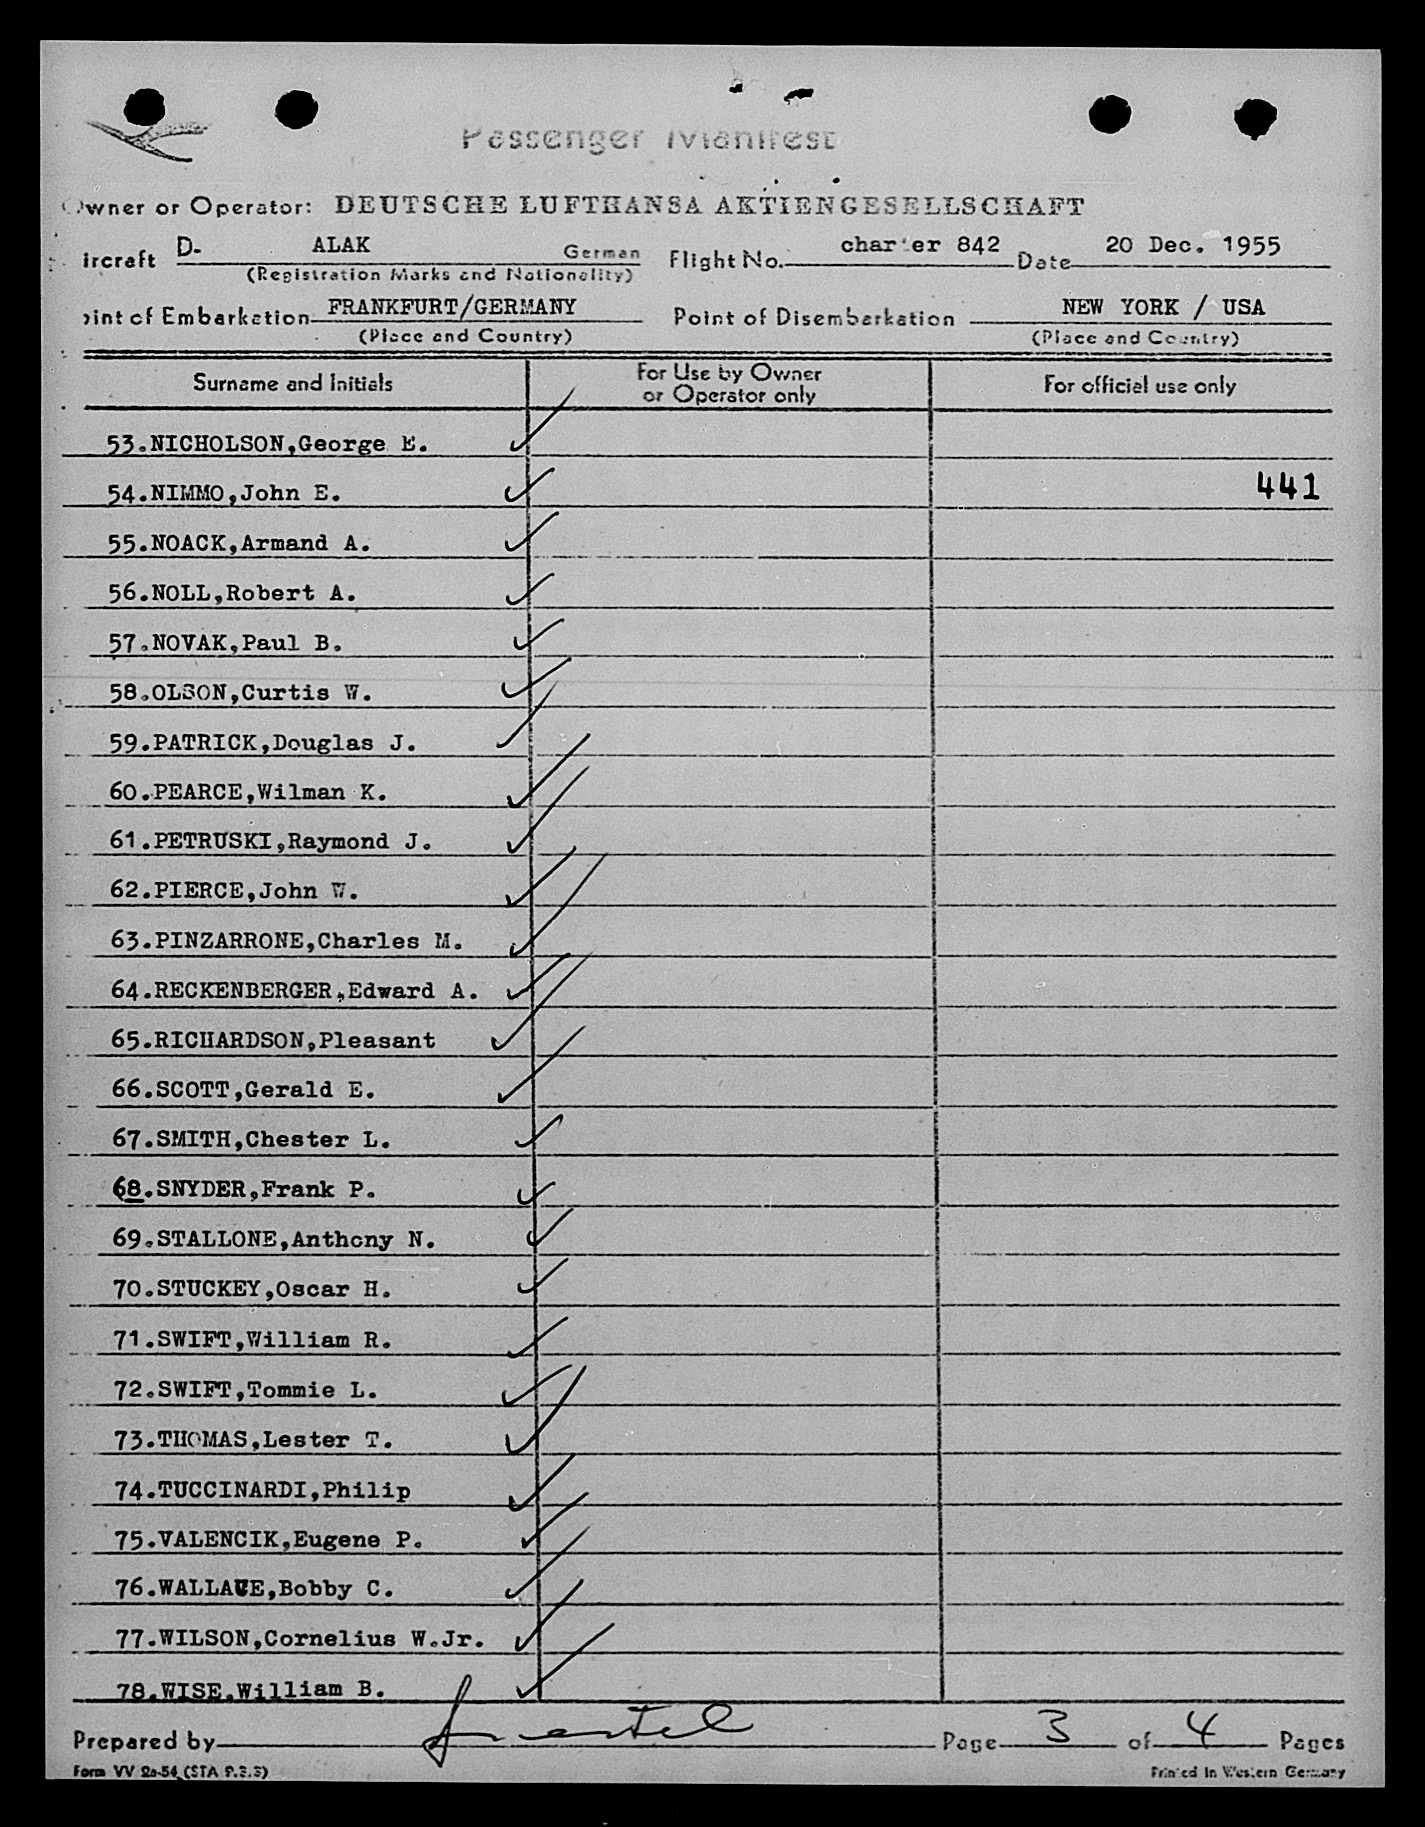 Passenger Manifest
Owner or Operator: DEUTSCHE LUFTHANSA AKTIENGESELLSCHAFT
ircraft D- ALAK German Flight No. charter 842 Date 20 Dec. 1955
(Registration Marks and Nationality)
oint of Embarkation FRANKFURT/GERMANY Point of Disembarkation NEW YORK / USA
(Place and Country) (Place and Country)
Surname and Initials For Use by Owner or Operator only For official use only
53.NICHOLSON,George E.
54.NIMMO,John E. 441
55.NOACK,Armand A.
56.NOLL,Robert A.
57.NOVAK,Paul B.
58.OLSON,Curtis W.
59.PATRICK,Douglas J.
60.PEARCE,Wilman K.
61.PETRUSKI,Raymond J.
62.PIERCE,John W.
63.PINZARRONE,Charles M.
64.RECKENBERGER,Edward A.
65.RICHARDSON,Pleasant
66.SCOTT,Gerald E.
67.SMITH,Chester L.
68.SNYDER,Frank P.
69.STALLONE,Anthony N.
70.STUCKEY,Oscar H.
71.SWIFT,William R.
72.SWIFT,Tommie L.
73.THOMAS,Lester T.
74.TUCCINARDI,Philip
75.VALENCIK,Eugene P.
76.WALLACE,Bobby C.
77.WILSON,Cornelius W.Jr.
78.WISE,William B.
Prepared by Page 3 of 4 Pages
Form VV 2a-54 (STA 9.3.3) Printed in Western Germany